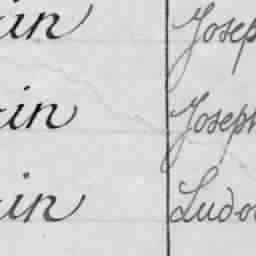 in Josep
in Joseph
in Ludo